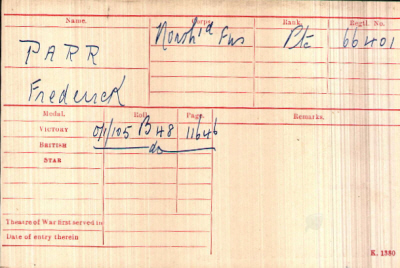 Name. Corps. Rank. Regtl. No.
PARR North'd Fus Pte 66401
Frederick
Medal. Roll. Page. Remarks.
VICTORY O/1/105 B48 11646
BRITISH do
STAR
Theatre of War first served in
Date of entry therein
K. 1380